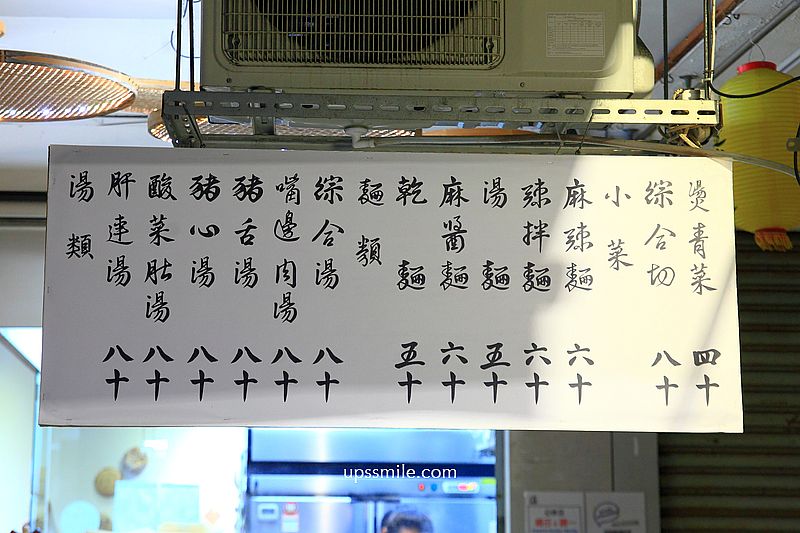 湯類
肝連湯 八十
酸菜肚湯 八十
豬心湯 八十
豬舌湯 八十
嘴邊肉湯 八十
綜合湯 八十
麵類
乾麵 五十
麻醬麵 六十
湯麵 五十
辣拌麵 六十
麻辣麵 六十
小菜
綜合切 八十
燙青菜 四十
upssmile.com